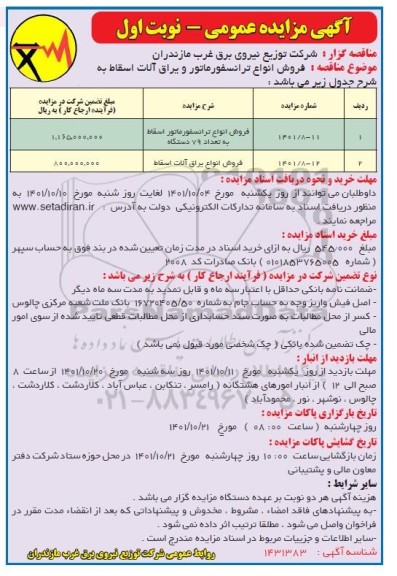 آگهی مزایده عمومی - نوبت اول
مناقصه گزار : شرکت توزیع نیروی برق غرب مازندران
موضوع مناقصه : فروش انواع ترانسفورماتور و یراق آلات اسقاط به
شرح جدول زیر می باشد :
ردیف شماره مزایده شرح مزایده مبلغ تضمین شرکت در مزایده (فرآیند ارجاع کار) به ریال
۱ ۱۴۰۱/۸-۱۱ فروش انواع ترانسفورماتور اسقاط به تعداد ۷۹ دستگاه ۱,۱۶۵,۰۰۰,۰۰۰
۲ ۱۴۰۱/۸-۱۲ فروش انواع یراق آلات اسقاط ۸۰۰,۰۰۰,۰۰۰
مهلت خرید و نحوه دریافت اسناد مزایده :
داوطلبان می توانند از روز یکشنبه مورخ ۱۴۰۱/۱۰/۰۴ لغایت روز شنبه مورخ ۱۴۰۱/۱۰/۱۰ به
منظور دریافت اسناد به سامانه تدارکات الکترونیکی دولت به آدرس : www.setadiran.ir
مراجعه نمایند .
مبلغ خرید اسناد مزایده :
مبلغ ۵۴۵/۰۰۰ ریال به ازای خرید اسناد در مدت زمان تعیین شده در بند فوق به حساب سپهر
( شماره ۰۱۰۱۸۵۳۷۶۵۰۰۵ ) بانک صادرات کد ۲۰۰۸
نوع تضمین شرکت در مزایده ( فرآیند ارجاع کار ) به شرح زیر می باشد :
-ضمانت نامه بانکی حداقل با اعتبار سه ماه و قابل تمدید به مدت سه ماه دیگر
- اصل فیش واریز وجه به حساب جام به شماره ۱۶۷۲۰۴۰۵/۵۰ بانک ملت شعبه مرکزی چالوس
- کسر از محل مطالبات به صورت سند حسابداری از محل مطالبات قطعی تایید شده از سوی امور
مالی
- چک تضمین شده بانکی ( چک شخصی مورد قبول نمی باشد )
مهلت بازدید از انبار :
مهلت بازدید از روز یکشنبه مورخ ۱۴۰۱/۱۰/۱۱ لغایت روز سه شنبه مورخ ۱۴۰۱/۱۰/۲۰ از ساعت ۸
صبح الی ۱۲ ( از انبار امورهای هشتگانه ( رامسر ، تنکابن ، عباس آباد ، کلاردشت ،
چالوس ، نوشهر ، نور ، محمودآباد )
تاریخ بارگزاری پاکات مزایده :
روز چهارشنبه ( ساعت ۰۸:۰۰ ) مورخ ۱۴۰۱/۱۰/۲۱
تاریخ گشایش پاکات مزایده :
زمان بازگشایی ساعت ۱۰:۰۰ روز چهارشنبه مورخ ۱۴۰۱/۱۰/۲۱ در محل حوزه ستاد شرکت دفتر
معاون مالی و پشتیبانی
سایر شرایط :
هزینه آگهی هر دو نوبت بر عهده دستگاه مزایده گزار می باشد .
-به پیشنهادهای فاقد امضاء ، مشروط ، مخدوش و پیشنهاداتی که بعد از انقضاء مدت مقرر در
فراخوان واصل می شود ، مطلقا ترتیب اثر داده نمی شود .
-سایر اطلاعات و جزییات مربوط در اسناد مزایده مندرج است .
شناسه آگهی : ۱۴۳۱۳۸۳
روابط عمومی شرکت توزیع نیروی برق غرب مازندران